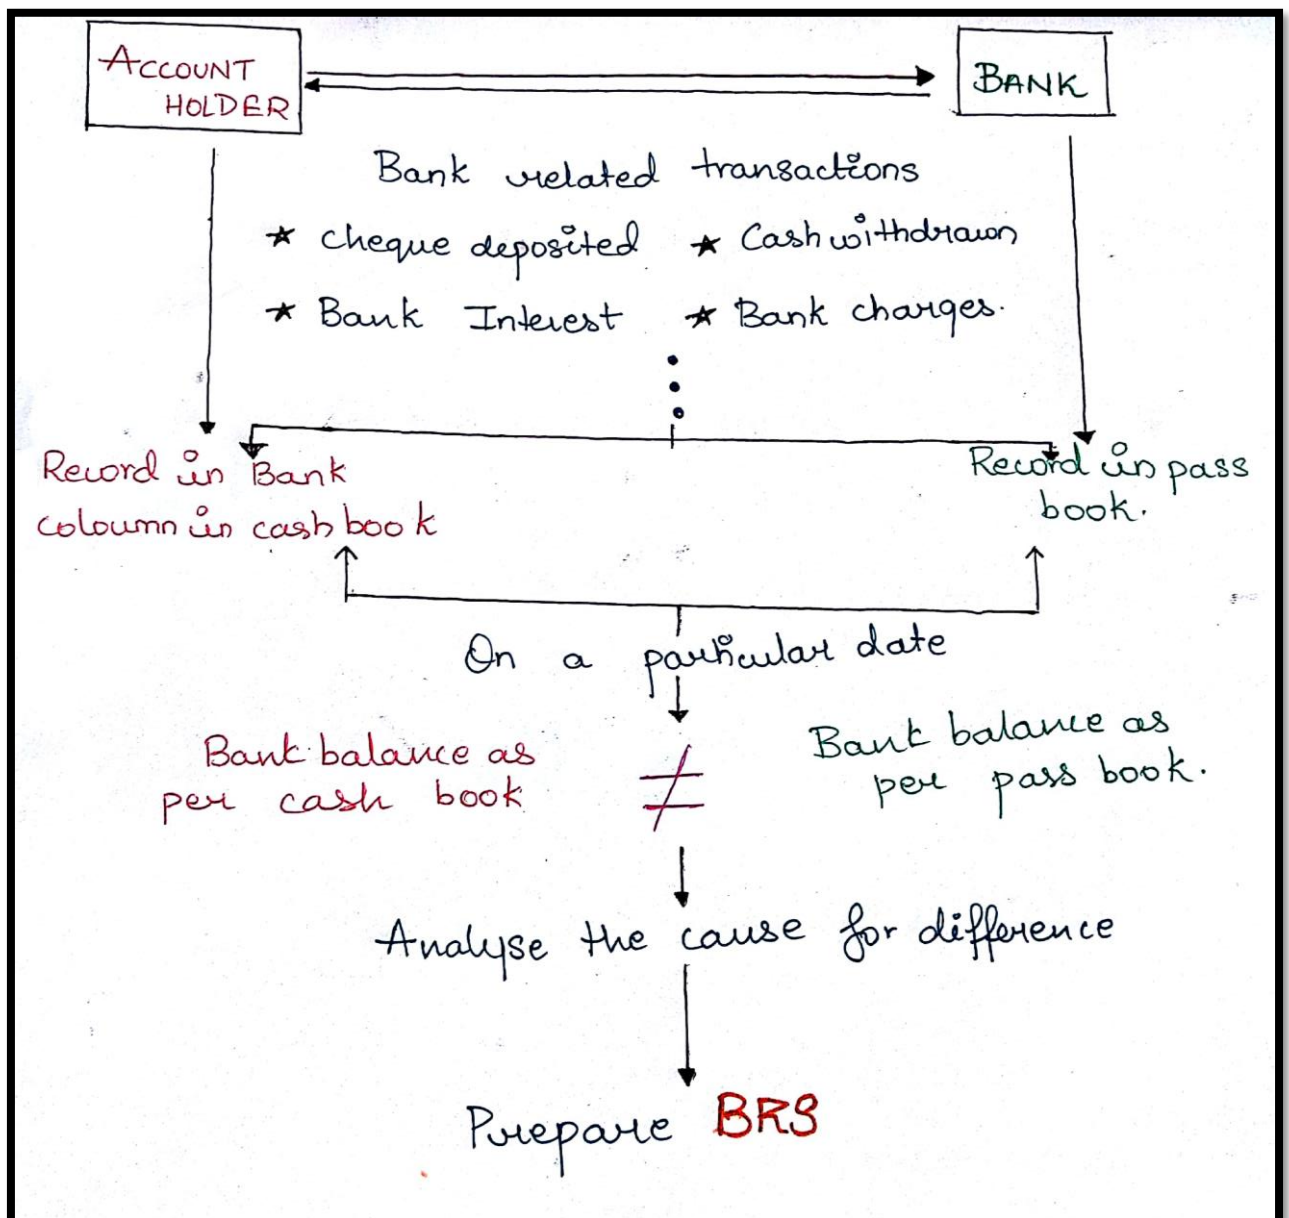 ACCOUNT
HOLDER
BANK
Bank related transactions
★ cheque deposited ★ Cash withdrawn
★ Bank Interest ★ Bank charges.
Record in Bank
coloumn in cash book
Record in pass
book.
On a particular date
Bank balance as
per cash book
≠
Bank balance as
per pass book.
Analyse the cause for difference
Prepare BRS